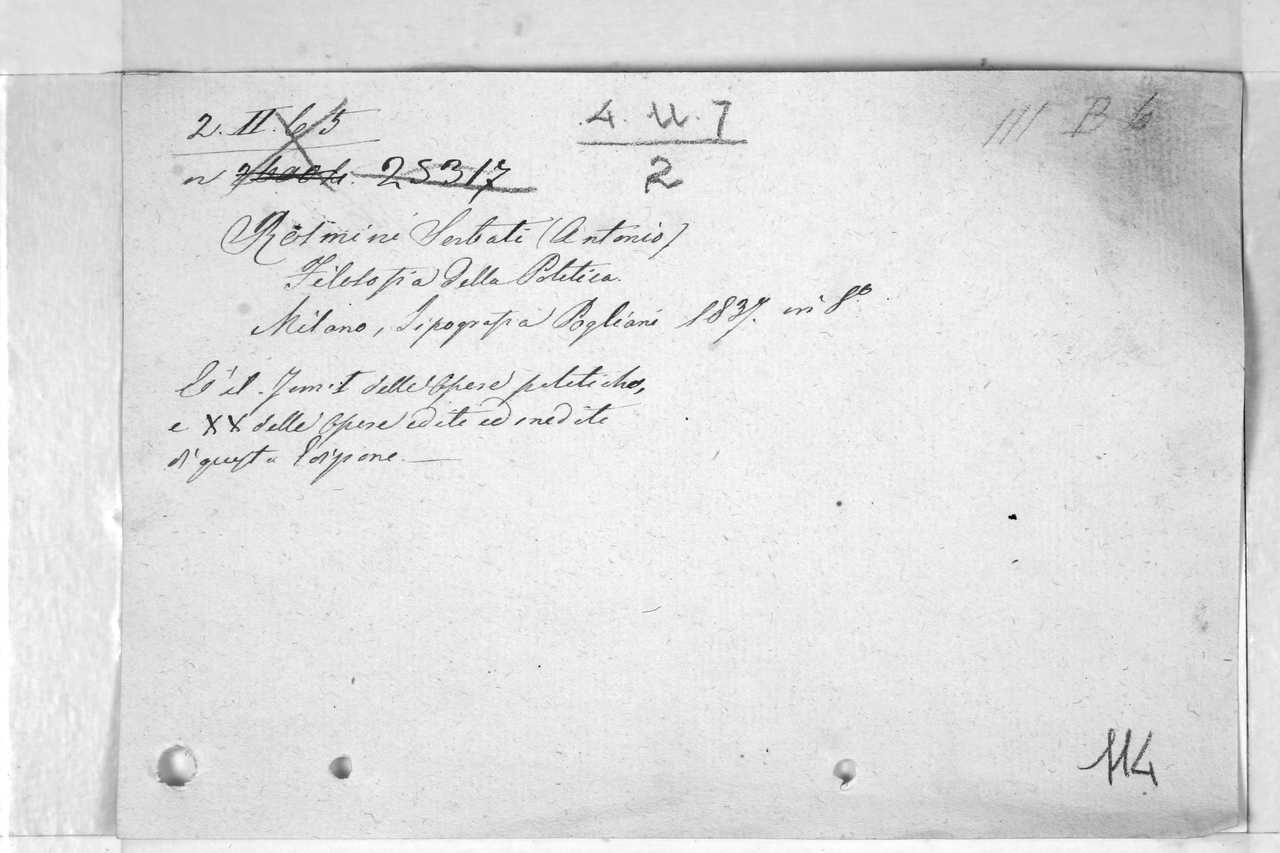 2. II. 6 5
4. 11. 7
III B 6
2
n 25317
Rosmini Serbati (Antonio)
Filosofia della Politica.
Milano, Tipografia Pogliani 1837. in 8º
È il delle Opere politiche,
e XX delle Opere edite ed inedite
di questa Edizione.—
114